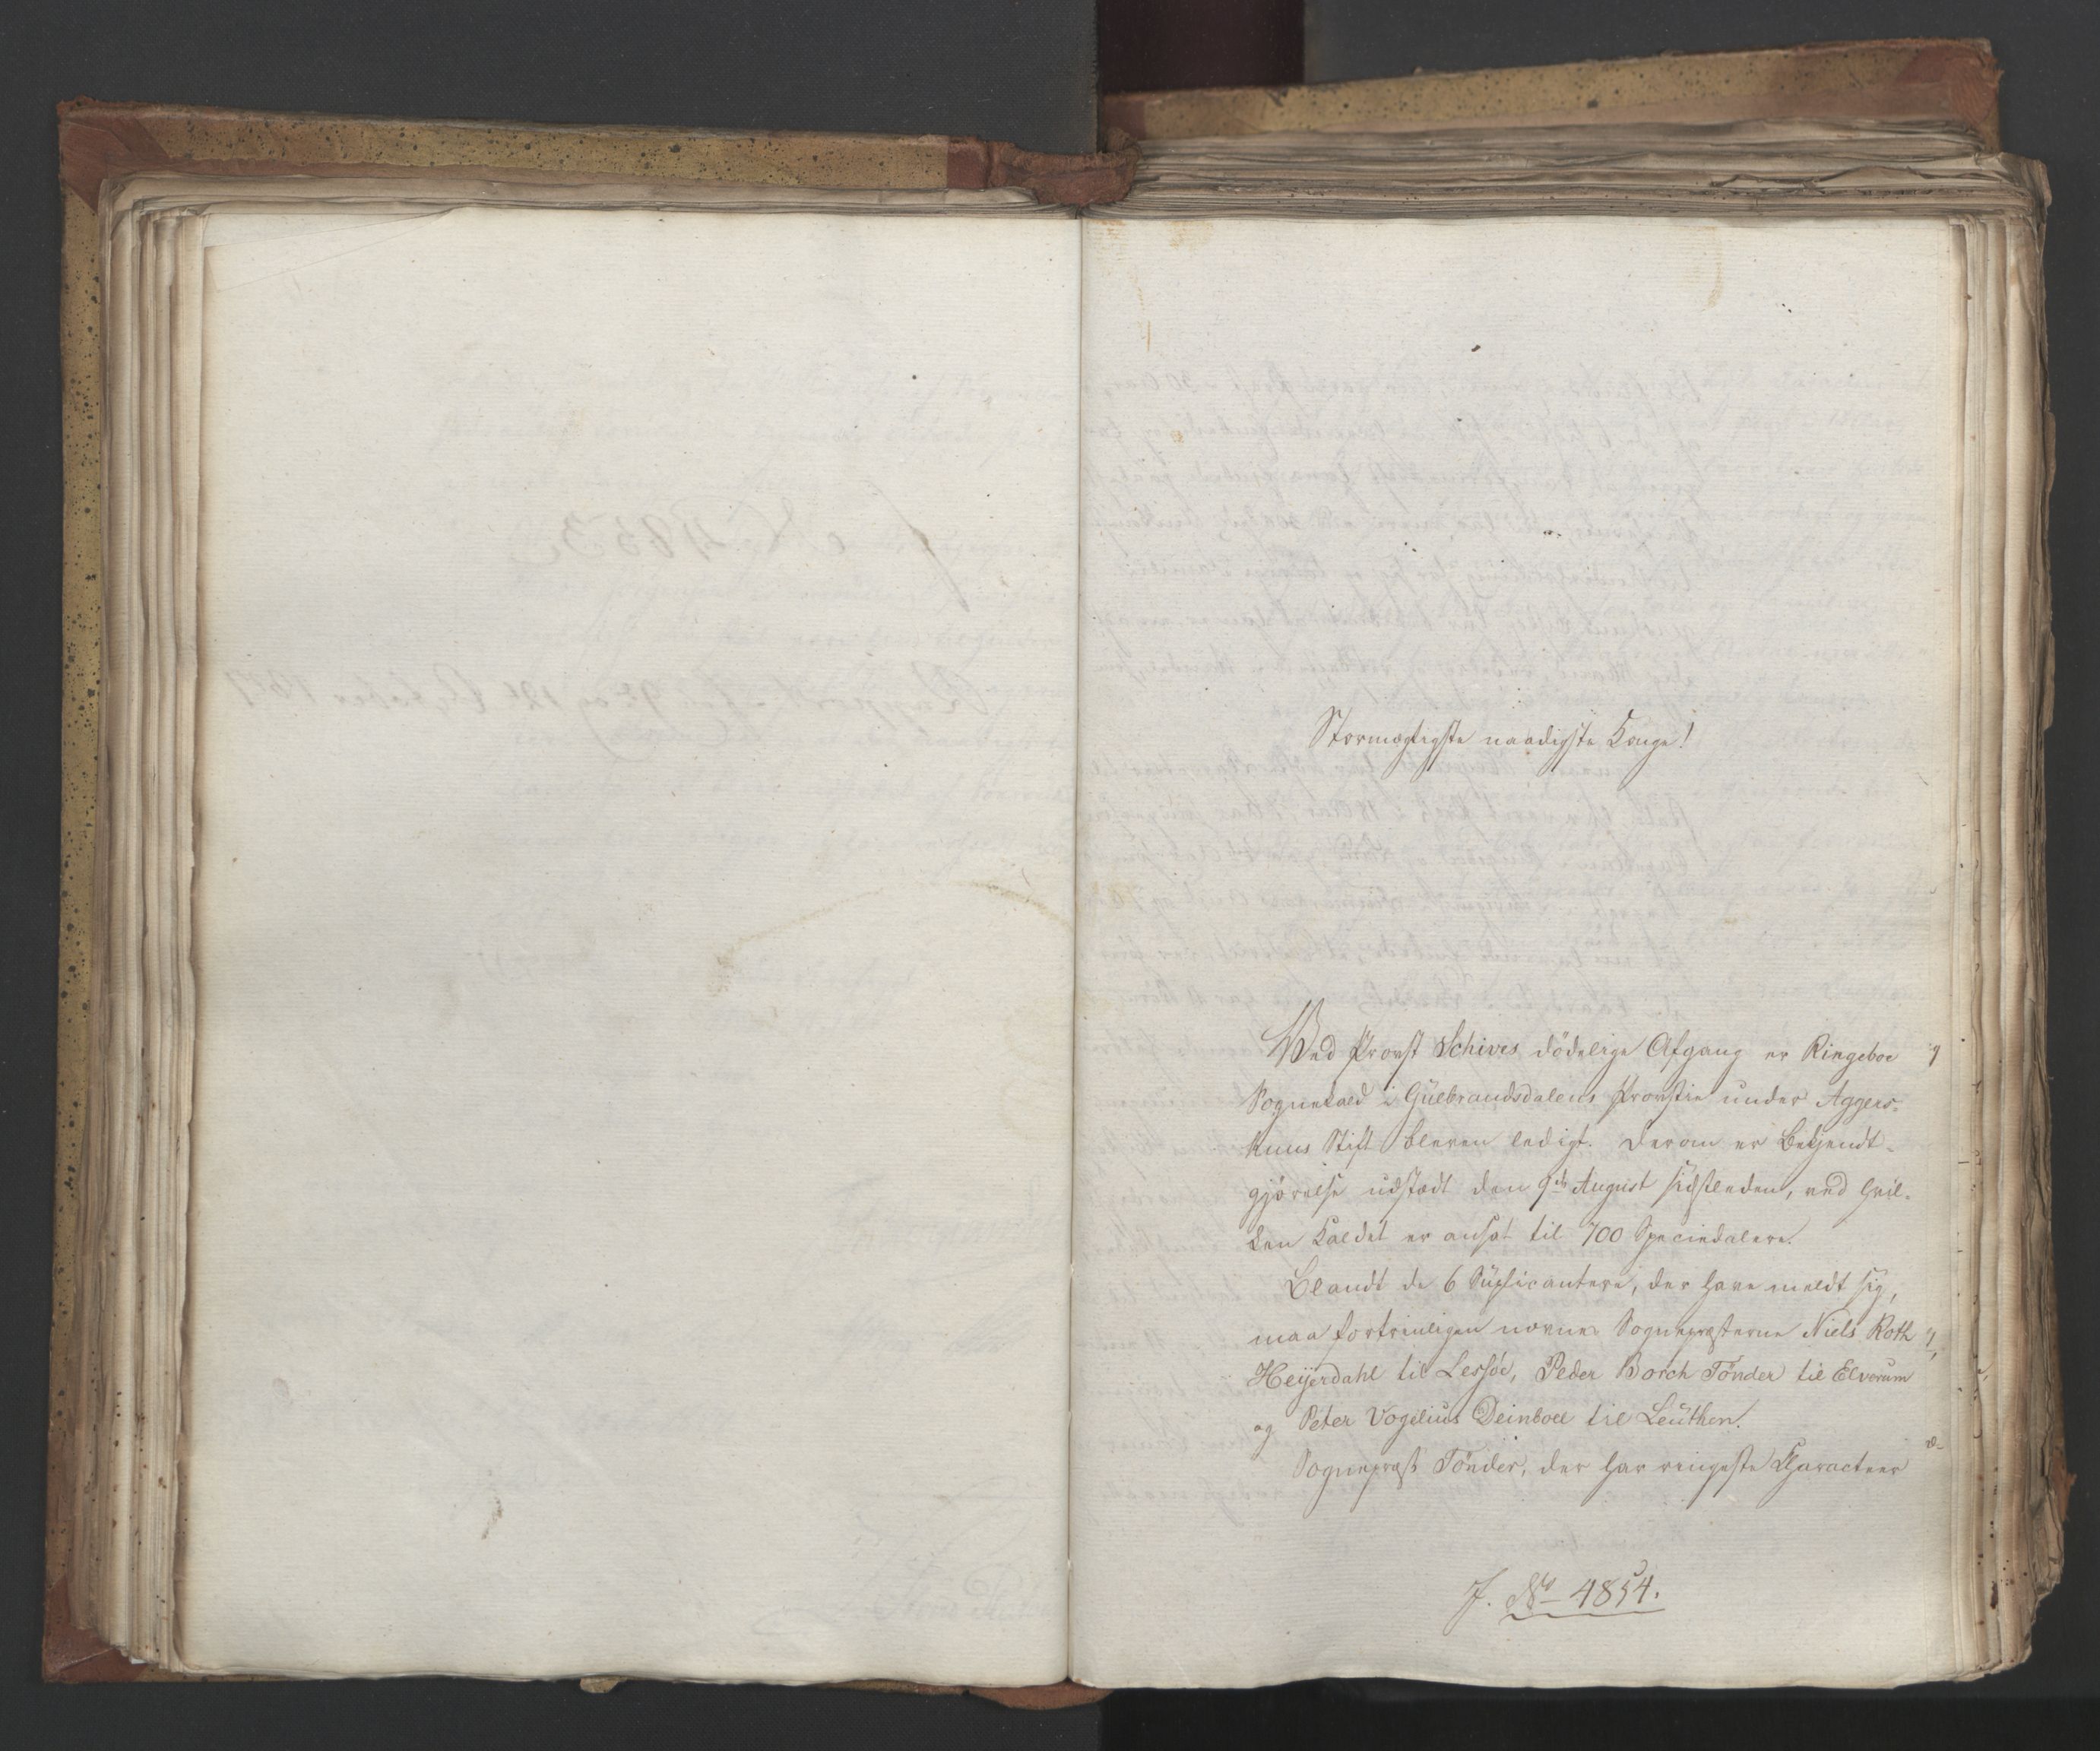 Stormægtigste naadigste Konge!
Ved Provst Schives dödelige Afgang er Ringeboe
Sognekald i Gülbrandsdalens Provstie under Aggers-
huus Stift bleven ledigt. Derom er Bekjendt-
gjörelse udstædt den 9de August sidstleden, ved hvil-
ken Kaldet er ansat til 700 Speciedalere.
Blandt de 6 Süpplicantere, der have meldt sig,
maa fortrinligen nævnes Sognepræsterne Niels Roth
Heyerdahl til Lessöe, Peder Borch Tönder til Elverum
og Peter Vogelius Deinboll til Leüthen.
Sognepræst Tönder, der har ringeste Characteer
J. No 4854.